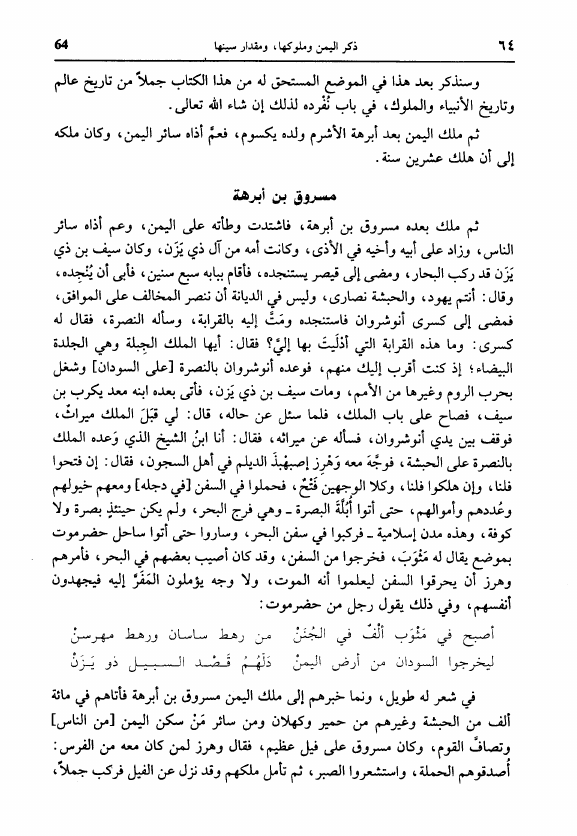 ٦٤ ذكر اليمن وملوكها، ومقدار سينها 64
وسنذكر بعد هذا في الموضع المستحق له من هذا الكتاب جملاً من تاريخ عالم
وتاريخ الأنبياء والملوك، في باب نُفْرده لذلك إن شاء الله تعالى.
ثم ملك اليمن بعد أبرهة الأشرم ولده يكسوم، فعمَّ أذاه سائر اليمن، وكان ملكه
إلى أن هلك عشرين سنة.
مسروق بن أبرهة
ثم ملك بعده مسروق بن أبرهة، فاشتدت وطأته على اليمن، وعم أذاه سائر
الناس، وزاد على أبيه وأخيه في الأذى، وكانت أمه من آل ذي يَزَن، وكان سيف بن ذي
يَزَن قد ركب البحار، ومضى إلى قيصر يستنجده، فأقام ببابه سبع سنين، فأبى أن يُنْجِده،
وقال: أنتم يهود، والحبشة نصارى، وليس في الديانة أن ننصر المخالف على الموافق،
فمضى إلى كسرى أنوشروان فاستنجده ومَتَّ إليه بالقرابة، وسأله النصرة، فقال له
كسرى: وما هذه القرابة التي أدْلَيتَ بها إليَّ؟ فقال: أيها الملك الجِبلة وهي الجلدة
البيضاء؛ إذ كنت أقرب إليك منهم، فوعده أنوشروان بالنصرة [على السودان] وشغل
بحرب الروم وغيرها من الأمم، ومات سيف بن ذي يَزن، فأتى بعده ابنه معد يكرب بن
سيف، فصاح على باب الملك، فلما سئل عن حاله، قال: لي قبَلَ الملك ميراثٌ،
فوقف بين يدي أنوشروان، فسأله عن ميراثه، فقال: أنا ابنُ الشيخ الذي وَعده الملك
بالنصرة على الحبشة، فوجَّهَ معه وَهْرِز إصبهْبذَ الديلم في أهل السجون، فقال: إن فتحوا
فلنا، وإن هلكوا فلنا، وكلا الوجهين فَتْحٌ، فحملوا في السفن [في دجله] ومعهم خيولهم
وعُددهم وأموالهم، حتى أتوا أُبُلَّةَ البصرة ـ وهي فرج البحر، ولم يكن حينئذٍ بصرة ولا
كوفة، وهذه مدن إسلامية ـ فركبوا في سفن البحر، وساروا حتى أتوا ساحل حضرموت
بموضع يقال له مَثْوَبَ، فخرجوا من السفن، وقد كان أصيب بعضهم في البحر، فأمرهم
وهرز أن يحرقوا السفن ليعلموا أنه الموت، ولا وجه يؤملون المَفَرَّ إليه فيجهدون
أنفسهم، وفي ذلك يقول رجل من حضرموت:
أصبح في مَثْوَب ألْفٌ في الجُنَنْ من رهط ساسان ورهط مهرسنْ
ليخرجوا السودان من أرض اليمنْ دَلَّهُمُ قَـصْـد الـسـبـيـل ذو يَـزَنْ
في شعر له طويل، ونما خبرهم إلى ملك اليمن مسروق بن أبرهة فأتاهم في مائة
ألف من الحبشة وغيرهم من حمير وكهلان ومن سائر مَنْ سكن اليمن [من الناس]
وتصافَّ القوم، وكان مسروق على فيل عظيم، فقال وهرز لمن كان معه من الفرس:
أصدقوهم الحملة، واستشعروا الصبر، ثم تأمل ملكهم وقد نزل عن الفيل فركب جملاً،